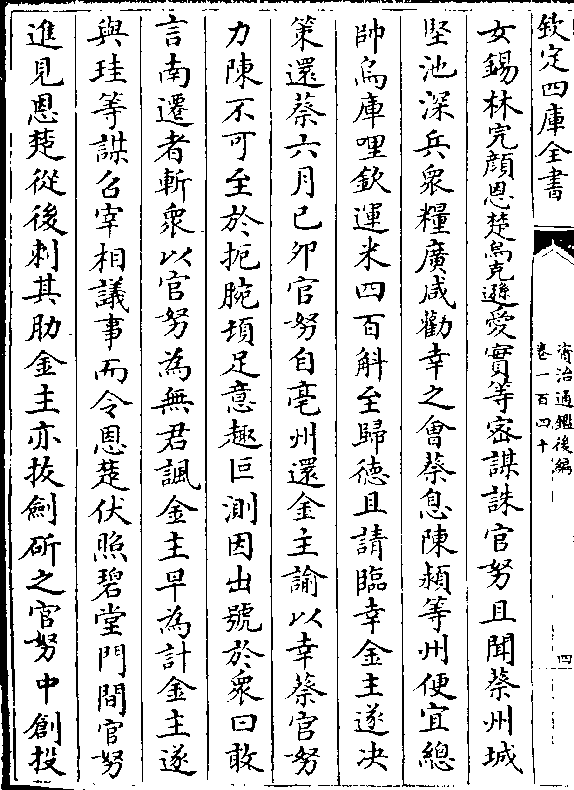 欽定四庫全書
資治通鑑後編
卷一百四十
四
女錫林完顏恩楚烏克遜愛實等密謀誅官努且聞蔡州城
堅池深兵衆糧廣咸勸幸之會蔡息陳潁等州便宜總
帥烏庫哩欽運米四百斛至歸德且請臨幸金主遂决
策還蔡六月己卯官努自亳州還金主諭以幸蔡官努
力陳不可至於扼腕頓足意趣叵測因出號於衆曰敢
言南遷者斬衆以官努為無君諷金主早為計金主遂
與珪等謀召宰相議事而令恩楚伏照碧堂門間官努
進見恩楚從後刺其肋金主亦拔劍斫之官努中創投